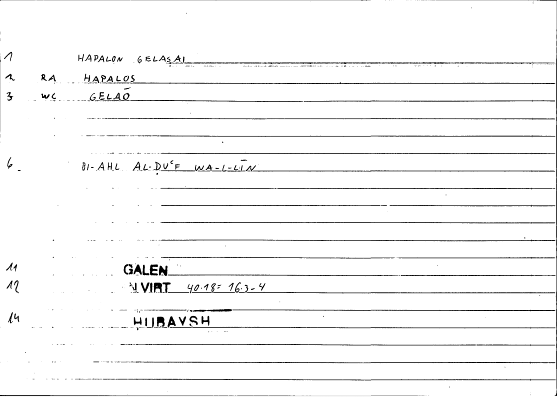 1 HAPALON GELASAI
2 RA HAPALOS
3 WC GELAŌ
6 BI-AHL AL-ḌUʿF WA-L-LĪN
11 GALEN
12 N VIRT 40.18 = 16.3-4
14 HUBAYSH